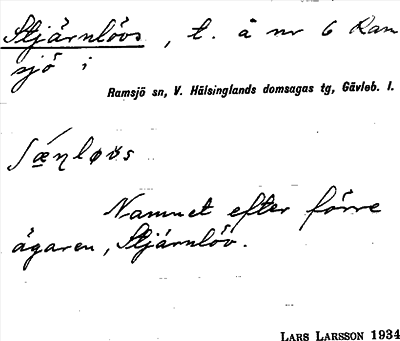 Stjärnlövs, t. å nr 6 Ram
sjö i
Ramsjö sn, V. Hälsinglands domsagas tg, Gävleb. l.
ʃǽɳløvs
Namnet efter förre
ägaren, Stjärnlöv.
LARS LARSSON 1934